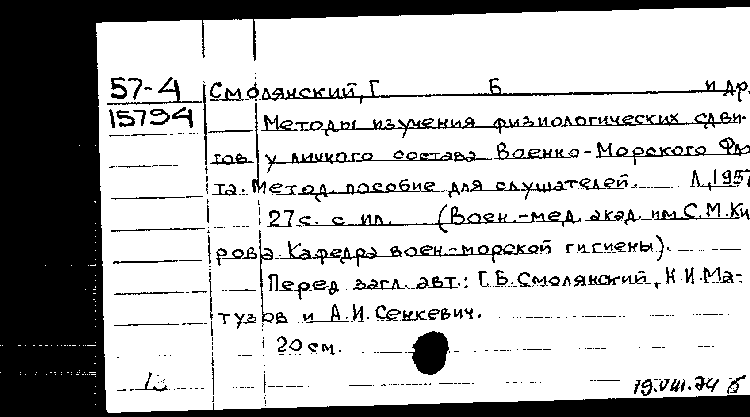 57-4
15794
Смолянский, Г Б и др.
Методы изучения физиологических сдви-
гов у личного состава Военно-Морского Фло
та. Метод. пособие для слушателей. Л, 1957
27с. с ил. (Воен.-мед. акад. им С.М.Ки
рова. Кафедра воен.-морской гигиены).
Перед загл. авт.: Г.Б.Смолянский, Н.И.Ма-
тузов и А.И.Сенкевич.
20 см.
19.VIII.74 б